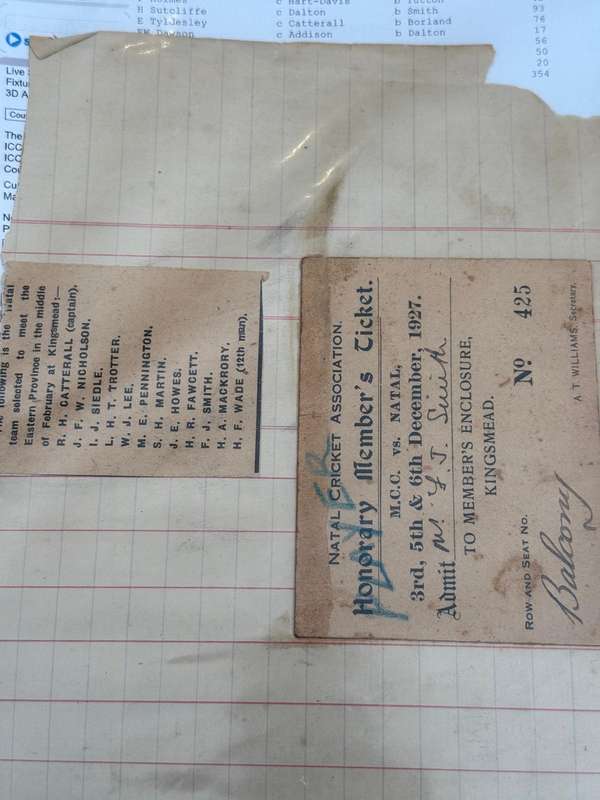 H Sutcliffe c Dalton b Smith 93
E Tyldesley c Catterall b Borland 76
EW Dawson c Addison b Dalton 17
56
50
20
354
Live
Fixtu
3D A
Cou
The
ICC
ICC
Cou
Cu
Ma
N
P
following is the Natal
team selected to meet the
Eastern Province in the middle
of February at Kingsmead:—
R. H. CATTERALL (captain),
J. F. W. NICHOLSON,
I. J. SIEDLE,
L. H. T. TROTTER,
W. J. LEE,
M. E. PENNINGTON,
S. H. MARTIN,
J. E. HOWES,
H. R. FAWCETT,
F. J. SMITH,
H. A. MACKRORY,
H. F. WADE (12th man),
NATAL CRICKET ASSOCIATION.
Honorary Member's Ticket.
PLAYER
M.C.C. vs. NATAL,
3rd, 5th & 6th December, 1927.
Admit Mr F. J. Smith
TO MEMBER'S ENCLOSURE,
KINGSMEAD.
ROW AND SEAT NO. No 425
Balcony
A. T. WILLIAMS, Secretary.